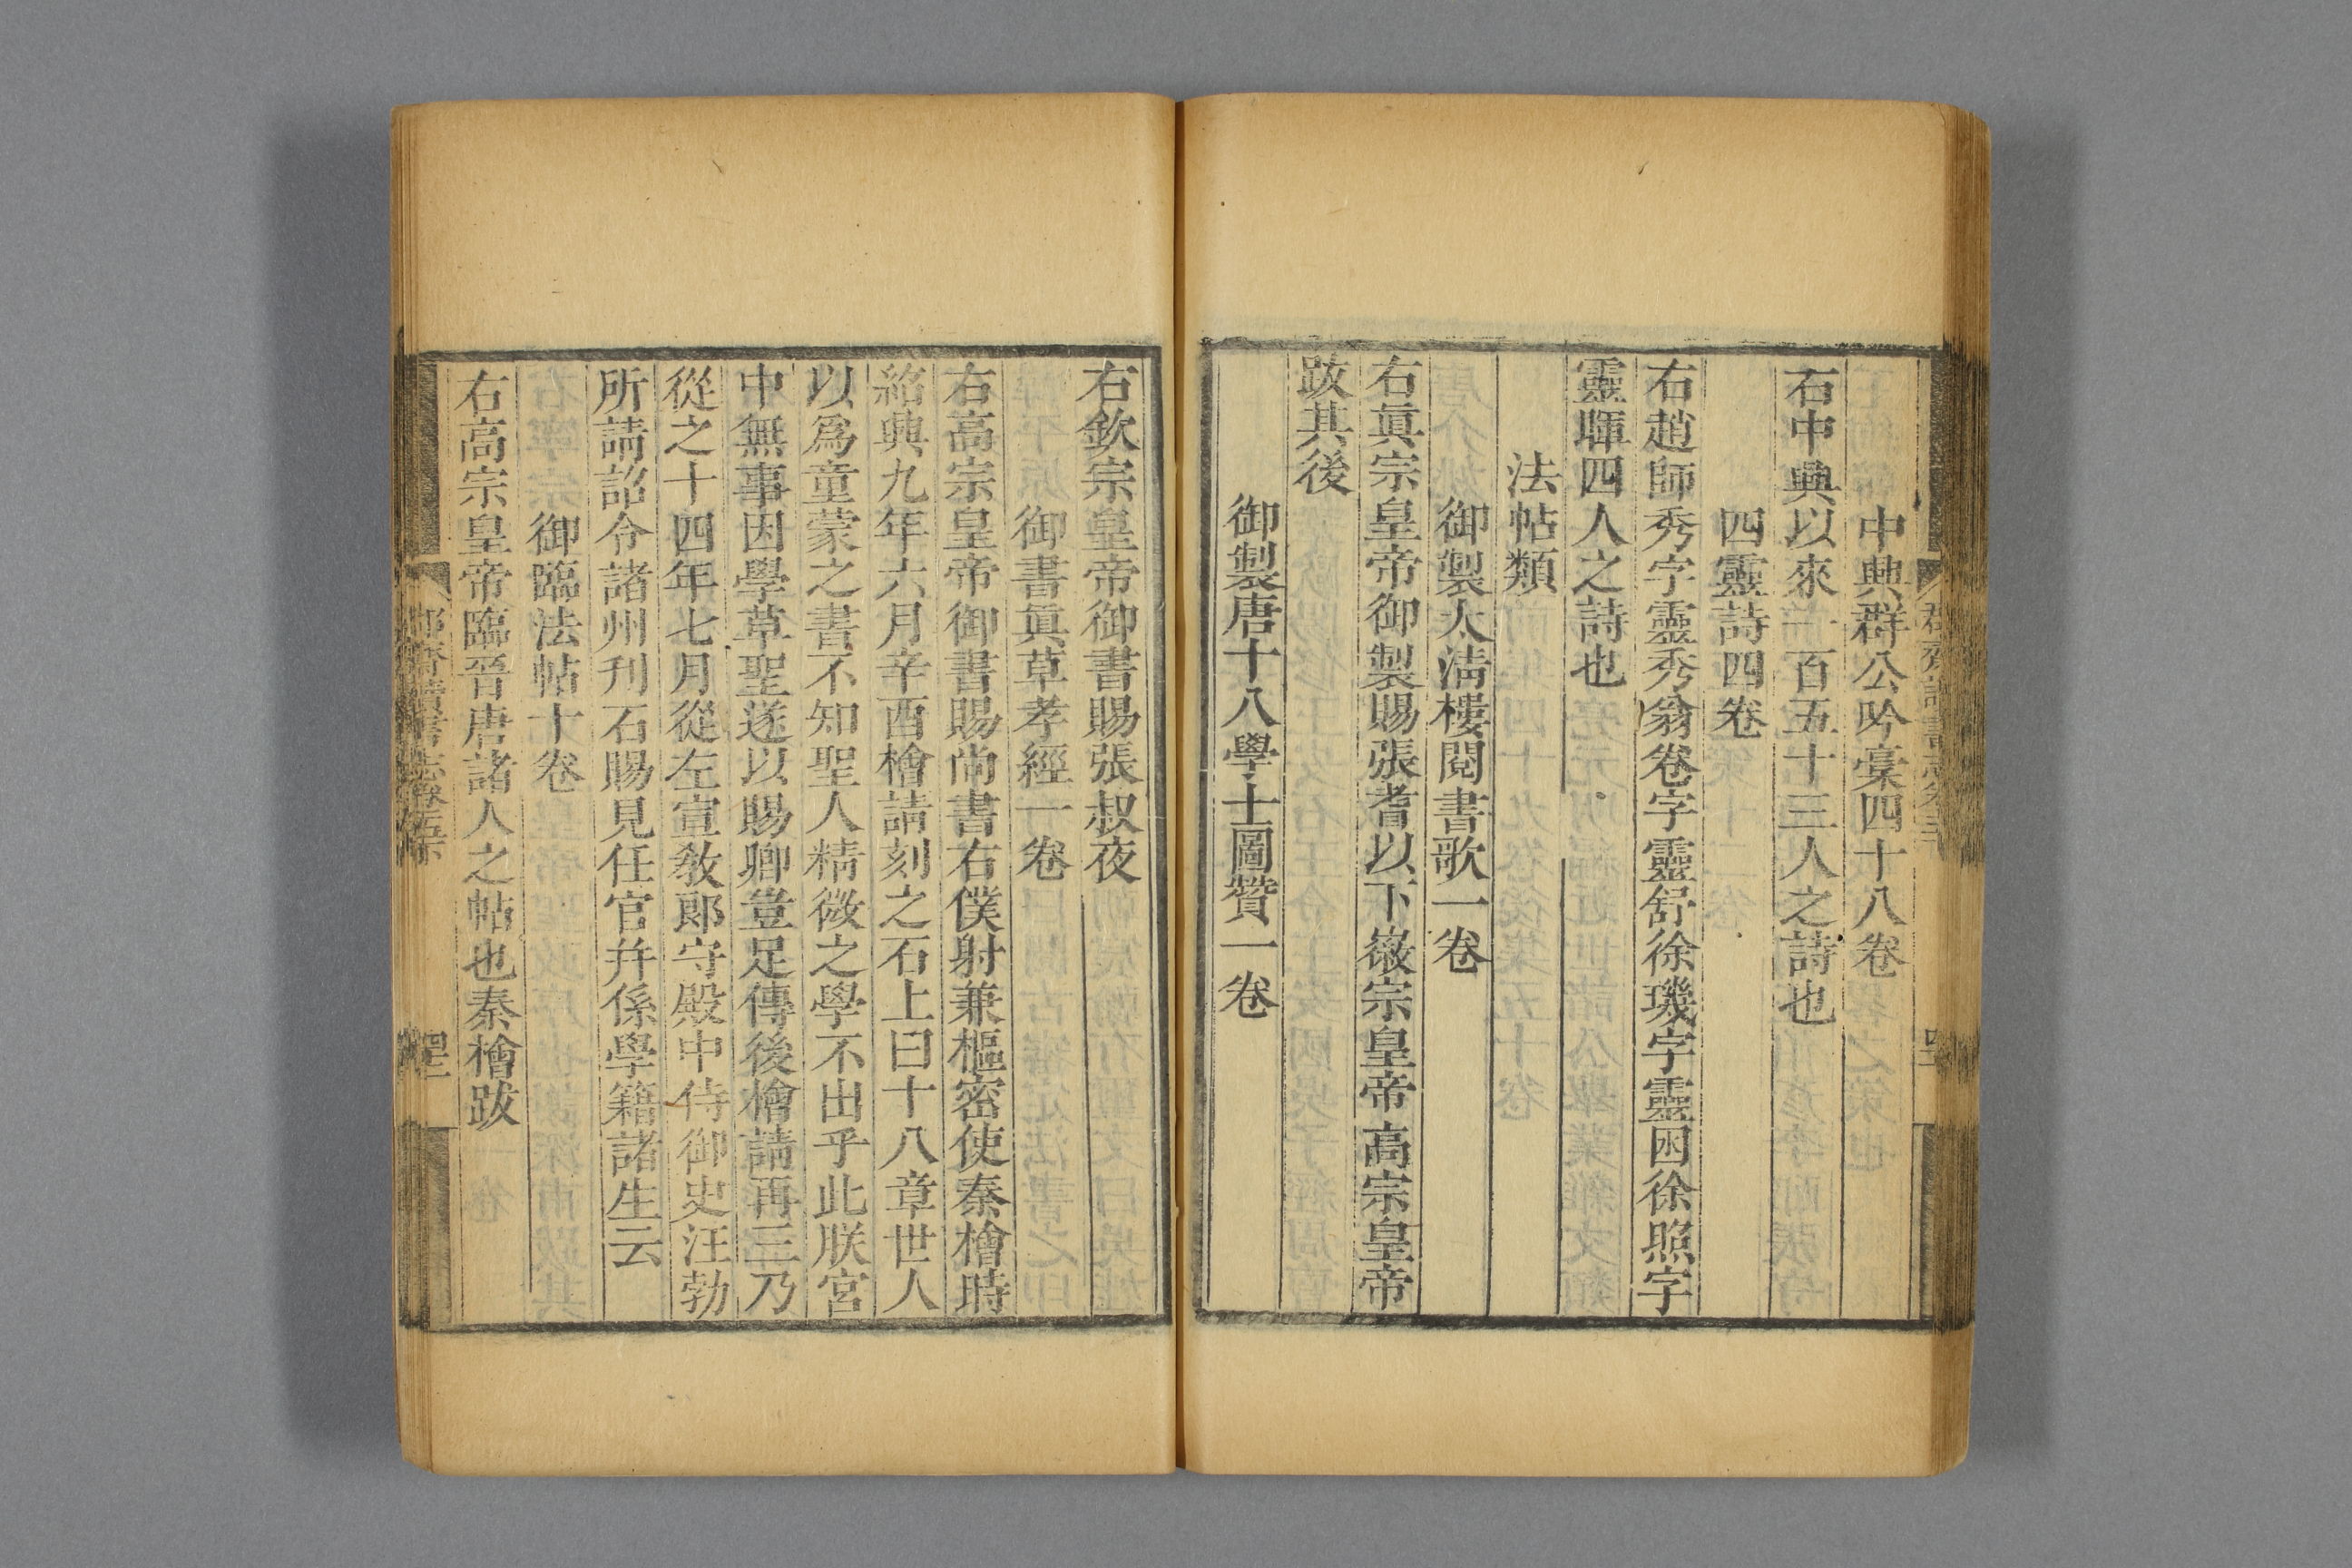 中興群公吟稾四十八卷
右中興以來一百五十三人之詩也
四靈詩四卷
右趙師秀字靈秀翁卷字靈舒徐璣字靈困徐照字
靈暉四人之詩也
法帖類
御製太淸樓閱書歌一卷
右眞宗皇帝御製賜張耆以下徽宗皇帝高宗皇帝
跋其後
御製唐十八學士圖贊一卷
右欽宗皇帝御書賜張叔夜
御書眞草孝經一卷
右高宗皇帝御書賜尚書右僕射兼樞密使秦檜時
紹興九年六月辛酉檜請刻之石上曰十八章世人
以爲童蒙之書不知聖人精微之學不出乎此朕宮
中無事因學草聖遂以賜卿豈足傳後檜請再三乃
從之十四年七月從左宣敎郎守殿中侍御史汪勃
所請詔令諸州刊石賜見任官幷係學籍諸生云
御臨法帖十卷
右高宗皇帝臨晉唐諸人之帖也秦檜跋